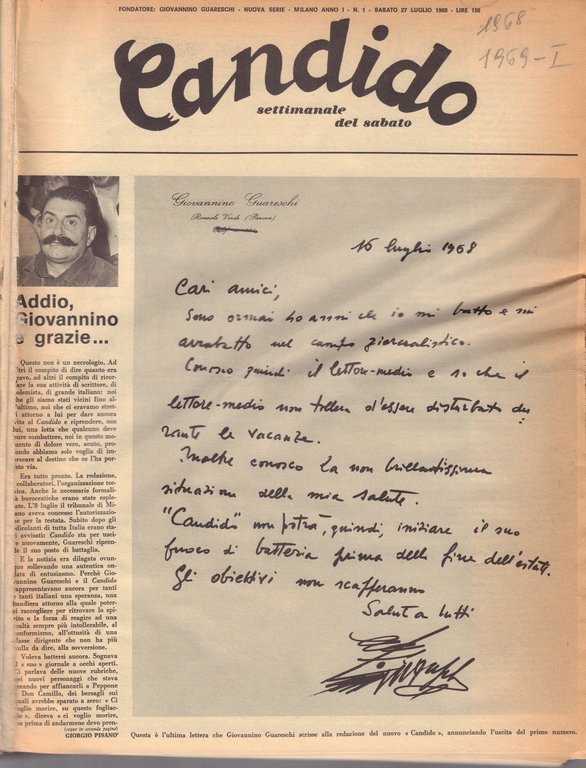 FONDATORE: GIOVANNINO GUARESCHI - NUOVA SERIE - MILANO ANNO I - N. 1 - SABATO 27 LUGLIO 1968 - LIRE 150
1968
1969-I
Candido
settimanale
del sabato
Giovannino Guareschi
Roncole Verdi (Parma)
16 luglio 1968
Cari amici,
Sono ormai 40 anni che io mi batto e mi
arrabatto nel campo giornalistico.
Conosco quindi il lettore-medio e so che il
lettore-medio non tollera d'essere disturbato du
rante le vacanze.
Inoltre conosco la non brillantissima
situazione della mia salute.
"Candido" non potrà, quindi, iniziare il suo
fuoco di batteria prima della fine dell'estate.
Gli obiettivi non scapperanno
Saluta tutti
Addio,
Giovannino
e grazie...
Questo non è un necrologio. Ad
altri il compito di dire quanto era
bravo, ad altri il compito di ricor-
dare la sua attività di scrittore, di
polemista, di grande italiano: noi
che gli siamo stati vicini fino al-
l'ultimo, noi che ci eravamo stret-
ti attorno a lui per dare ancora
vita al Candido e riprendere, con
lui, una lotta che qualcuno deve
pure combattere, noi in questo mo-
mento di dolore vero, acuto, pro-
fondo abbiamo solo voglia di im-
precare al destino che ce l'ha por-
tato via.
Era tutto pronto. La redazione,
i collaboratori, l'organizzazione tec-
nica. Anche le necessarie formali-
tà burocratiche erano state esple-
tate. L'8 luglio il tribunale di Mi-
lano aveva concesso l'autorizzazio-
ne per la testata. Subito dopo gli
edicolanti di tutta Italia erano sta-
ti avvisati: Candido sta per usci-
re nuovamente, Guareschi ripren-
de il suo posto di battaglia.
E la notizia era dilagata ovun-
que sollevando una autentica on-
data di entusiasmo. Perchè Gio-
vannino Guareschi e il Candido
rappresentavano ancora per tanti
e tanti italiani una speranza, una
bandiera attorno alla quale poter-
si raccogliere per ritrovare lo spi-
rito e la forza di reagire ad una
realtà sempre più intollerabile, al
conformismo, all'ottusità di una
classe dirigente che non ha più
nulla da dire, alla sovversione.
Voleva battersi ancora. Sognava
il « suo » giornale a occhi aperti.
Ci parlava delle nuove rubriche,
dei nuovi personaggi che stava
creando per affiancarli a Peppone
e Don Camillo, dei bersagli sui
quali avrebbe sparato a zero: « Ci
voglio morire, su questo fogliac-
cio », diceva « ci voglio morire,
ma prima di andarmene devo pren-
(segue in seconda pagina)
GIORGIO PISANO'
Questa è l'ultima lettera che Giovannino Guareschi scrisse alla redazione del nuovo « Candido », annunciando l'uscita del primo numero.